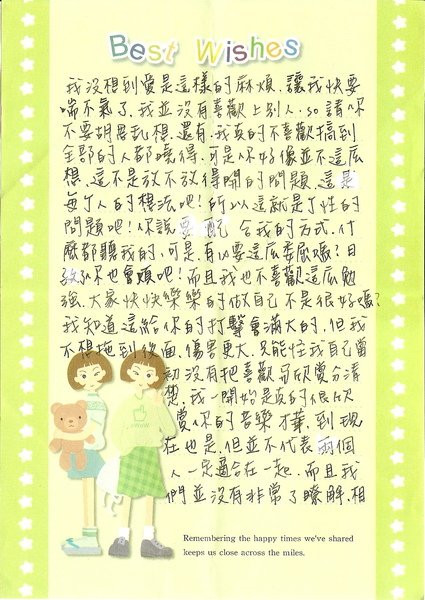 Best Wishes
我沒想到愛是這樣的麻煩，讓我快要
喘不氣了，我並沒有喜歡上別人，so請你
不要胡思亂想，還有，我真的不喜歡搞到
全部的人都曉得，可是你好像並不這麼
想，這不是放不放得開的問題，這是
每个人的想法吧！所以這就是个性的
問題吧！你說要配合我的方式，什
麼都聽我的，可是，有必要這麼委屈嗎？日
致久你也會煩吧！而且我也不喜歡這麼勉
強，大家快快樂樂的做自己不是很好嗎？
我知道這給你的打擊會滿大的，但我
不想拖到後面，傷害更大，只能怪我自己當
初沒有把喜歡與欣賞分清
楚，我一開始是真的很欣
賞你的音樂才華，到現
在也是，但並不代表兩個
人一定適合在一起，而且我
們並沒有非常了瞭解，相
Remembering the happy times we've shared
keeps us close across the miles.